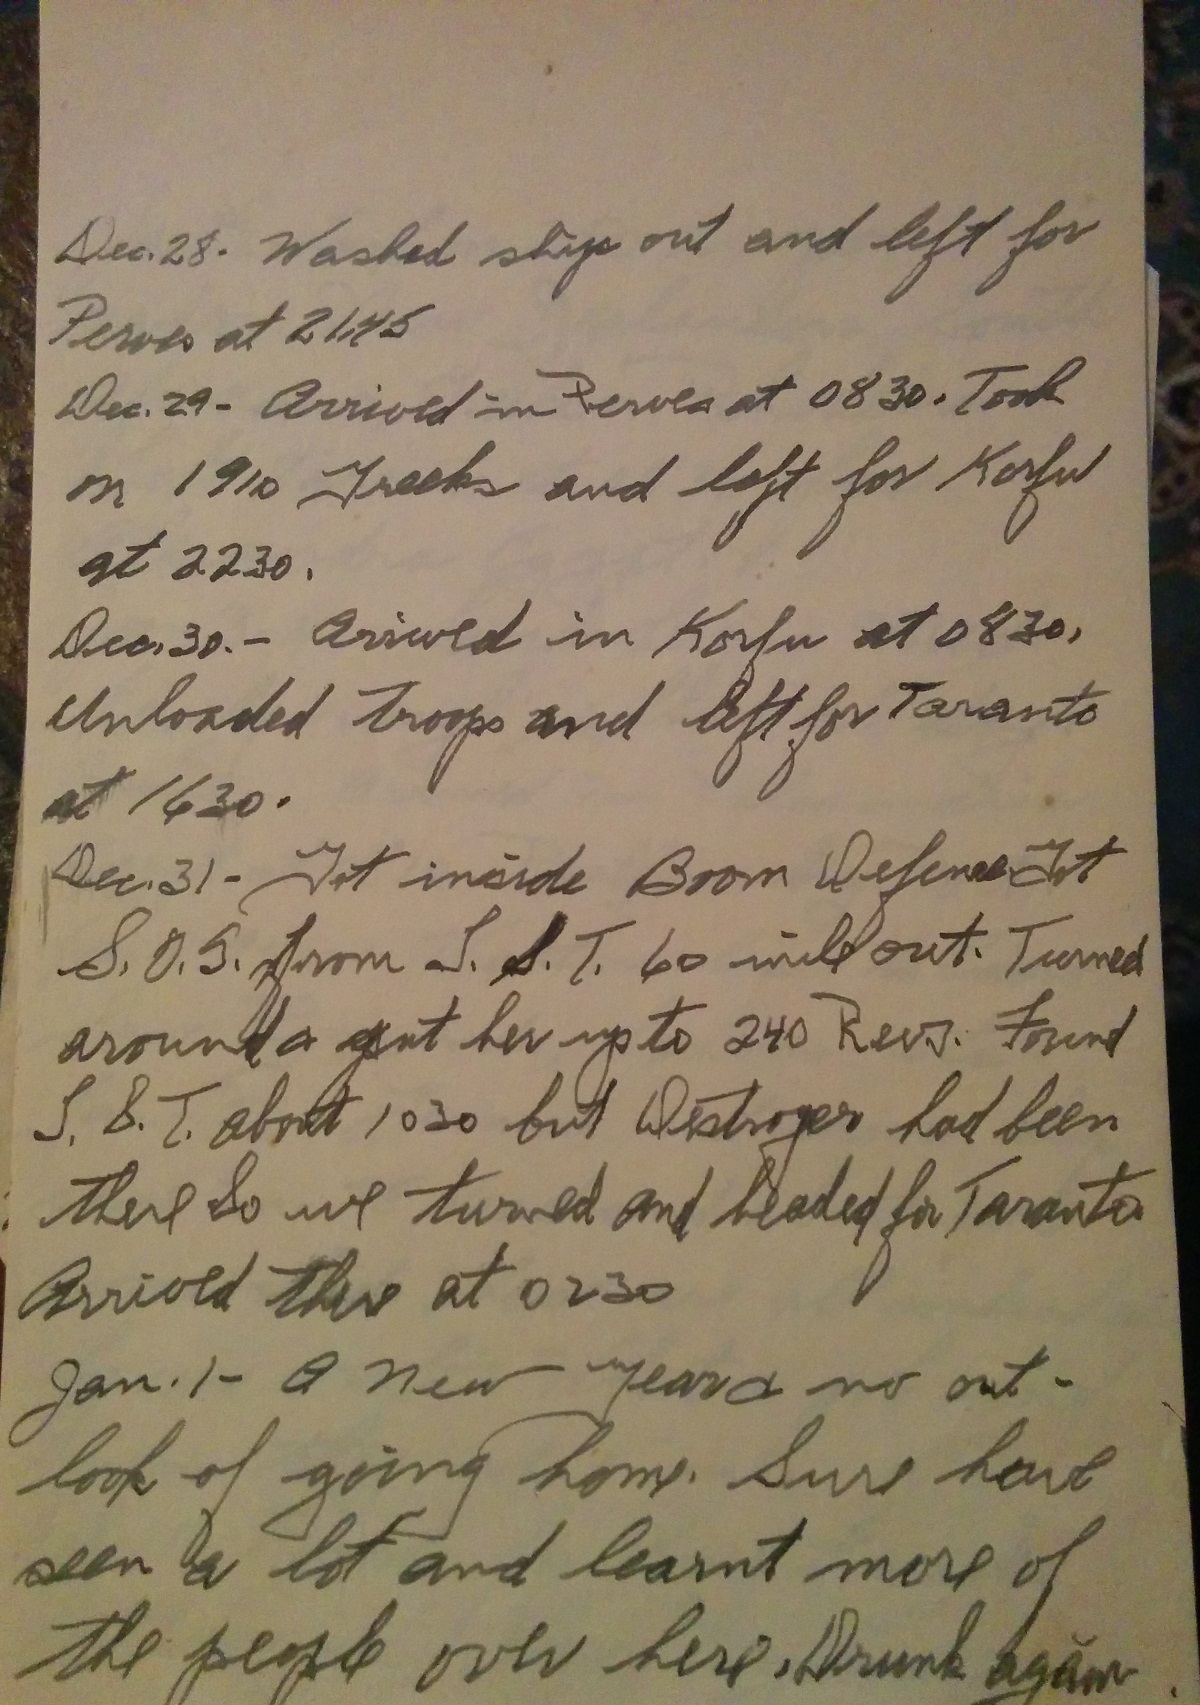 Dec. 28. Washed ship out and left for
Perves at 2145
Dec. 29 - Arrived in Perves at 0830. Took
on 1910 Greeks and left for Korfu
at 2230.
Dec. 30. - Arived in Korfu at 0830,
Unloaded troops and left for Taranto
at 1630.
Dec. 31 - Got inside Boom Defense. Got
S.O.S. from L.S.T. 60 mile out. Turned
around & put her up to 240 Revs. Found
L.S.T. about 1030 but Destroyer had been
there So we turned and headed for Taranto
Arrived there at 0230
Jan. 1 - A New Year & no out-
look of going home. Sure have
seen a lot and learnt more of
the people over here. Drunk again.